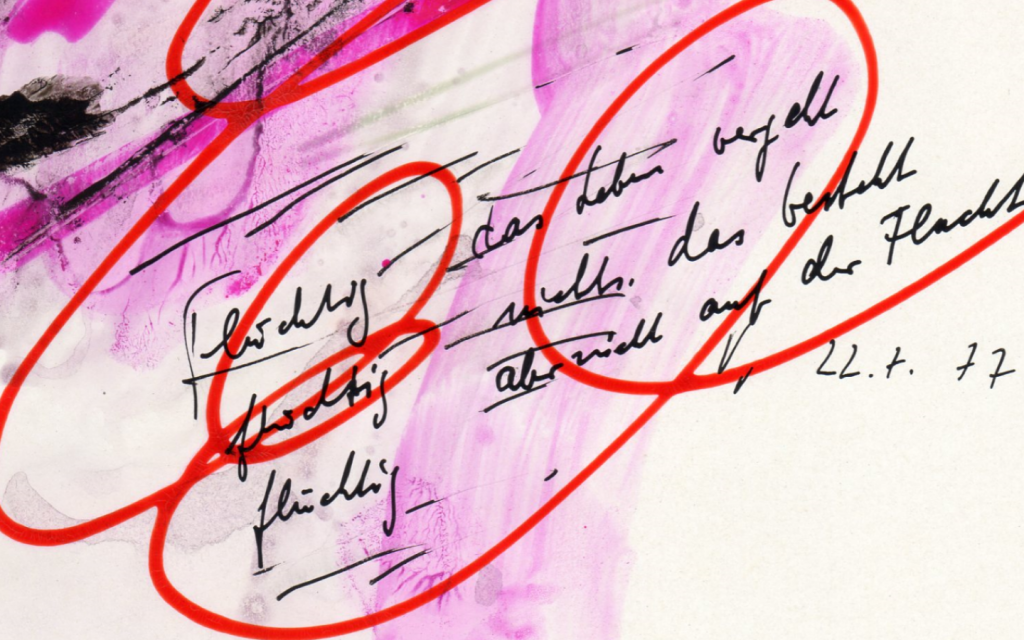 Flüchtig
flüchtig
flüchtig
das Leben vergeht
nichts. das besteht
aber nicht auf der Flucht
22.7.77